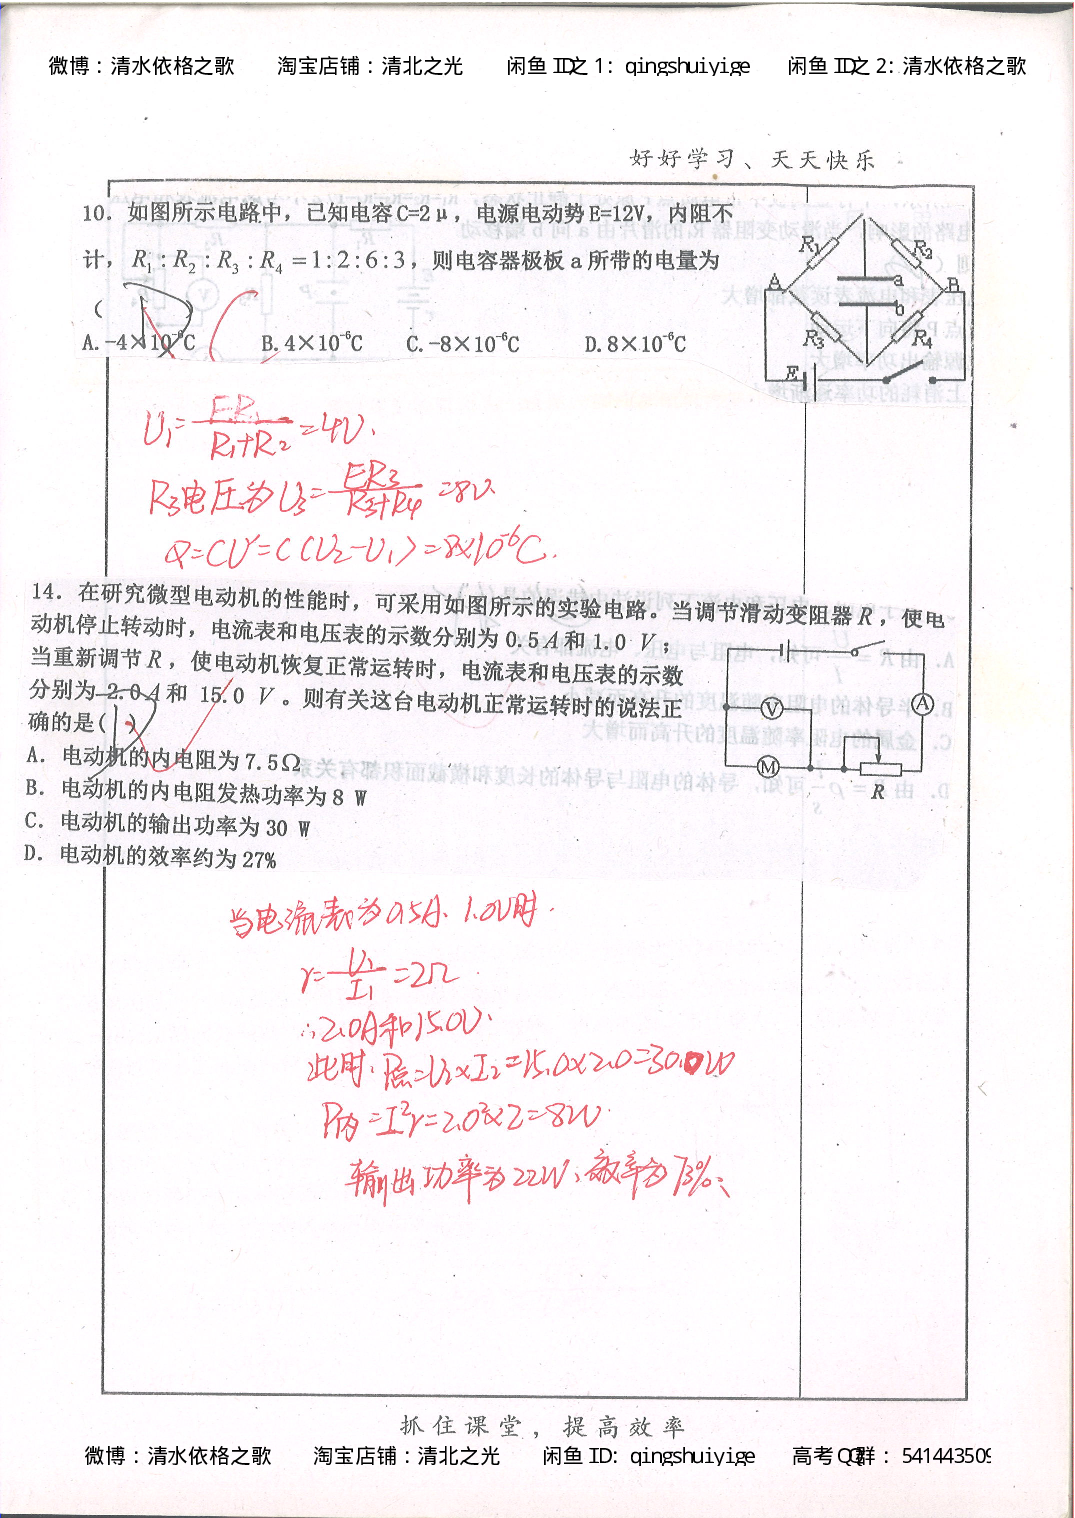 微博：清水依格之歌 淘宝店铺：清北之光 闲鱼ID之1：qingshuiyige 闲鱼ID之2：清水依格之歌
好好学习、天天快乐
10．如图所示电路中，已知电容C=2μ，电源电动势E=12V，内阻不
计，R₁:R₂:R₃:R₄=1:2:6:3，则电容器极板a所带的电量为
（ ）
A.-4×10⁻⁶C B.4×10⁻⁶C C.-8×10⁻⁶C D.8×10⁻⁶C
R₁ R₂
a
A B
b
R₃ R₄
E
U₁=ER₁/(R₁+R₂)=4V.
R₃电压为U₃=ER₃/(R₃+R₄)=8V
Q=CU=C(U₂-U₁)=8×10⁻⁶C.
14．在研究微型电动机的性能时，可采用如图所示的实验电路。当调节滑动变阻器R，使电
动机停止转动时，电流表和电压表的示数分别为0.5A和1.0 V；
当重新调节R，使电动机恢复正常运转时，电流表和电压表的示数
分别为2.0A和 15.0 V。则有关这台电动机正常运转时的说法正
确的是( )
A．电动机的内电阻为7.5Ω
B．电动机的内电阻发热功率为8 W
C．电动机的输出功率为30 W
D．电动机的效率约为27%
V
A
M
R
当电流表为0.5A、1.0V时.
r=U₁/I₁=2Ω
∴2.0A和15.0V.
此时.P总=U₂×I₂=15.0×2.0=30.0W
P内=I²r=2.0²×2=8W.
输出功率为22W、效率为73%、
抓住课堂，提高效率
微博：清水依格之歌 淘宝店铺：清北之光 闲鱼ID：qingshuiyige 高考QQ群：541443509